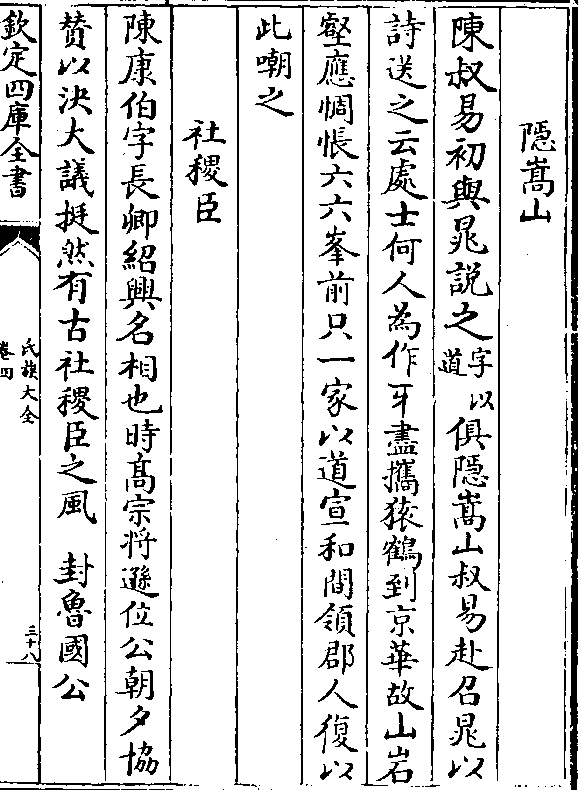 隠嵩山
陳叔易初與晁說之字以道俱隠嵩山叔易赴召晁以
詩送之云處士何人為作牙盡攜猿鶴到京華故山岩
壑應惆悵六六峯前只一家以道宣和間領郡人復以
此嘲之
社稷臣
陳康伯字長卿紹興名相也時髙宗将遜位公朝夕協
賛以決大議挺然有古社稷臣之風　封魯國公
欽定四庫全書
氏族大全
卷四
三十八